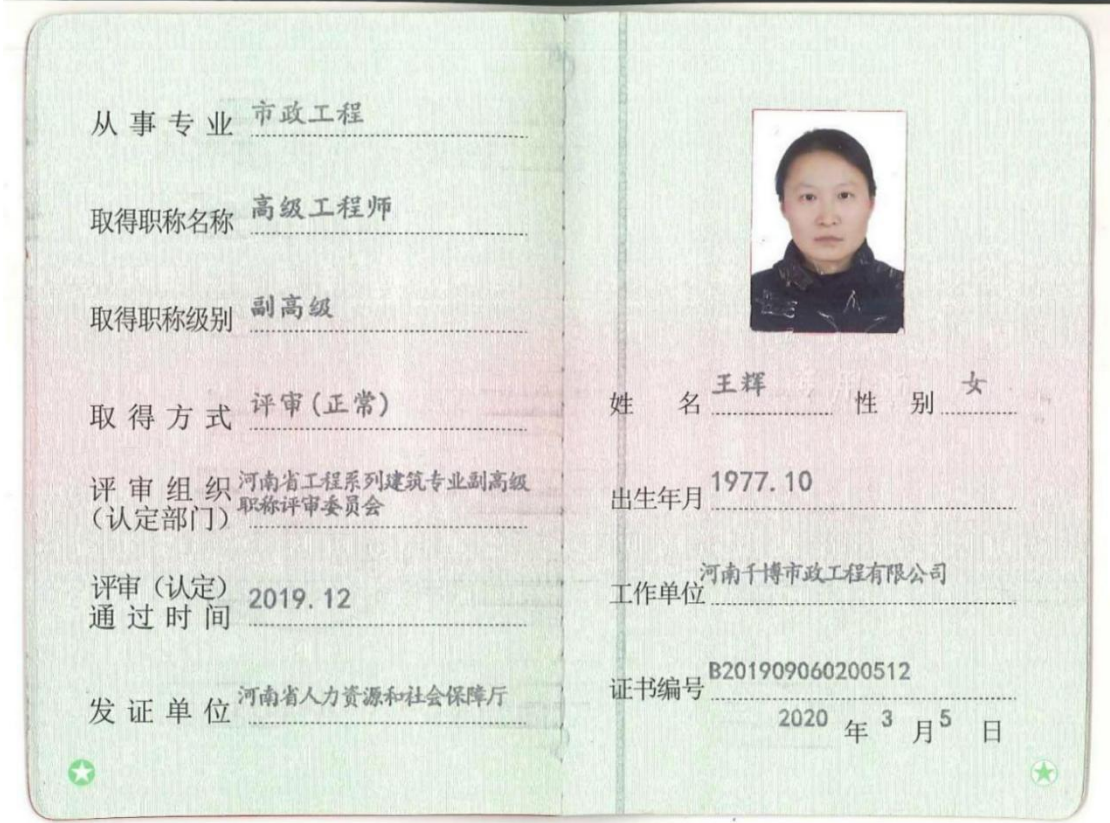 从事专业 市政工程
取得职称名称 高级工程师
取得职称级别 副高级
取得方式 评审(正常)
评审组织 河南省工程系列建筑专业副高级
(认定部门) 职称评审委员会
评审(认定)
通过时间 2019.12
发证单位 河南省人力资源和社会保障厅
姓名 王辉 性别 女
出生年月 1977.10
工作单位 河南千博市政工程有限公司
证书编号 B201909060200512
2020年3月5日